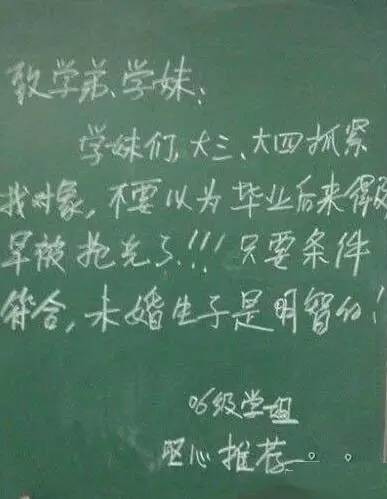 致学弟、学妹:
学妹们,大三、大四抓紧
找对象,不要以为毕业后来得及
早被抢先了!!!只要条件
符合,未婚生子是明智的!
06级学姐
呕心推荐。。